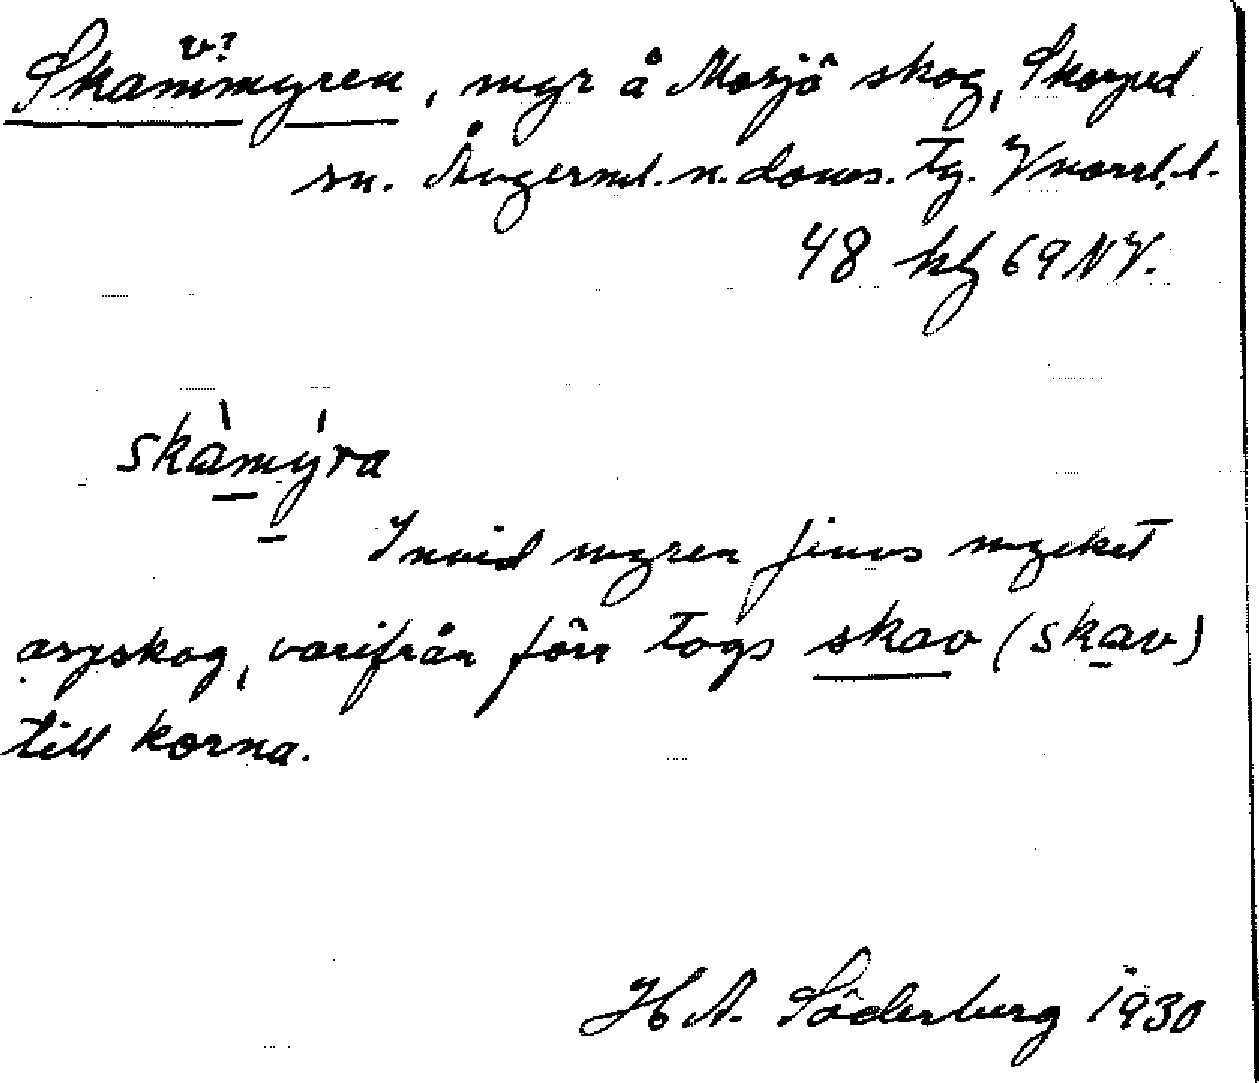 v?
Skammyren, myr å Mosjö skog, Skorped
sn. Ångerml. n. doms. tg. Vnorrl. l.
48 kf 69 NV.
skàmýra
Invid myren finns mycket
aspskog, varifrån förr togs skav (skav)
till korna.
H A. Söderberg 1930